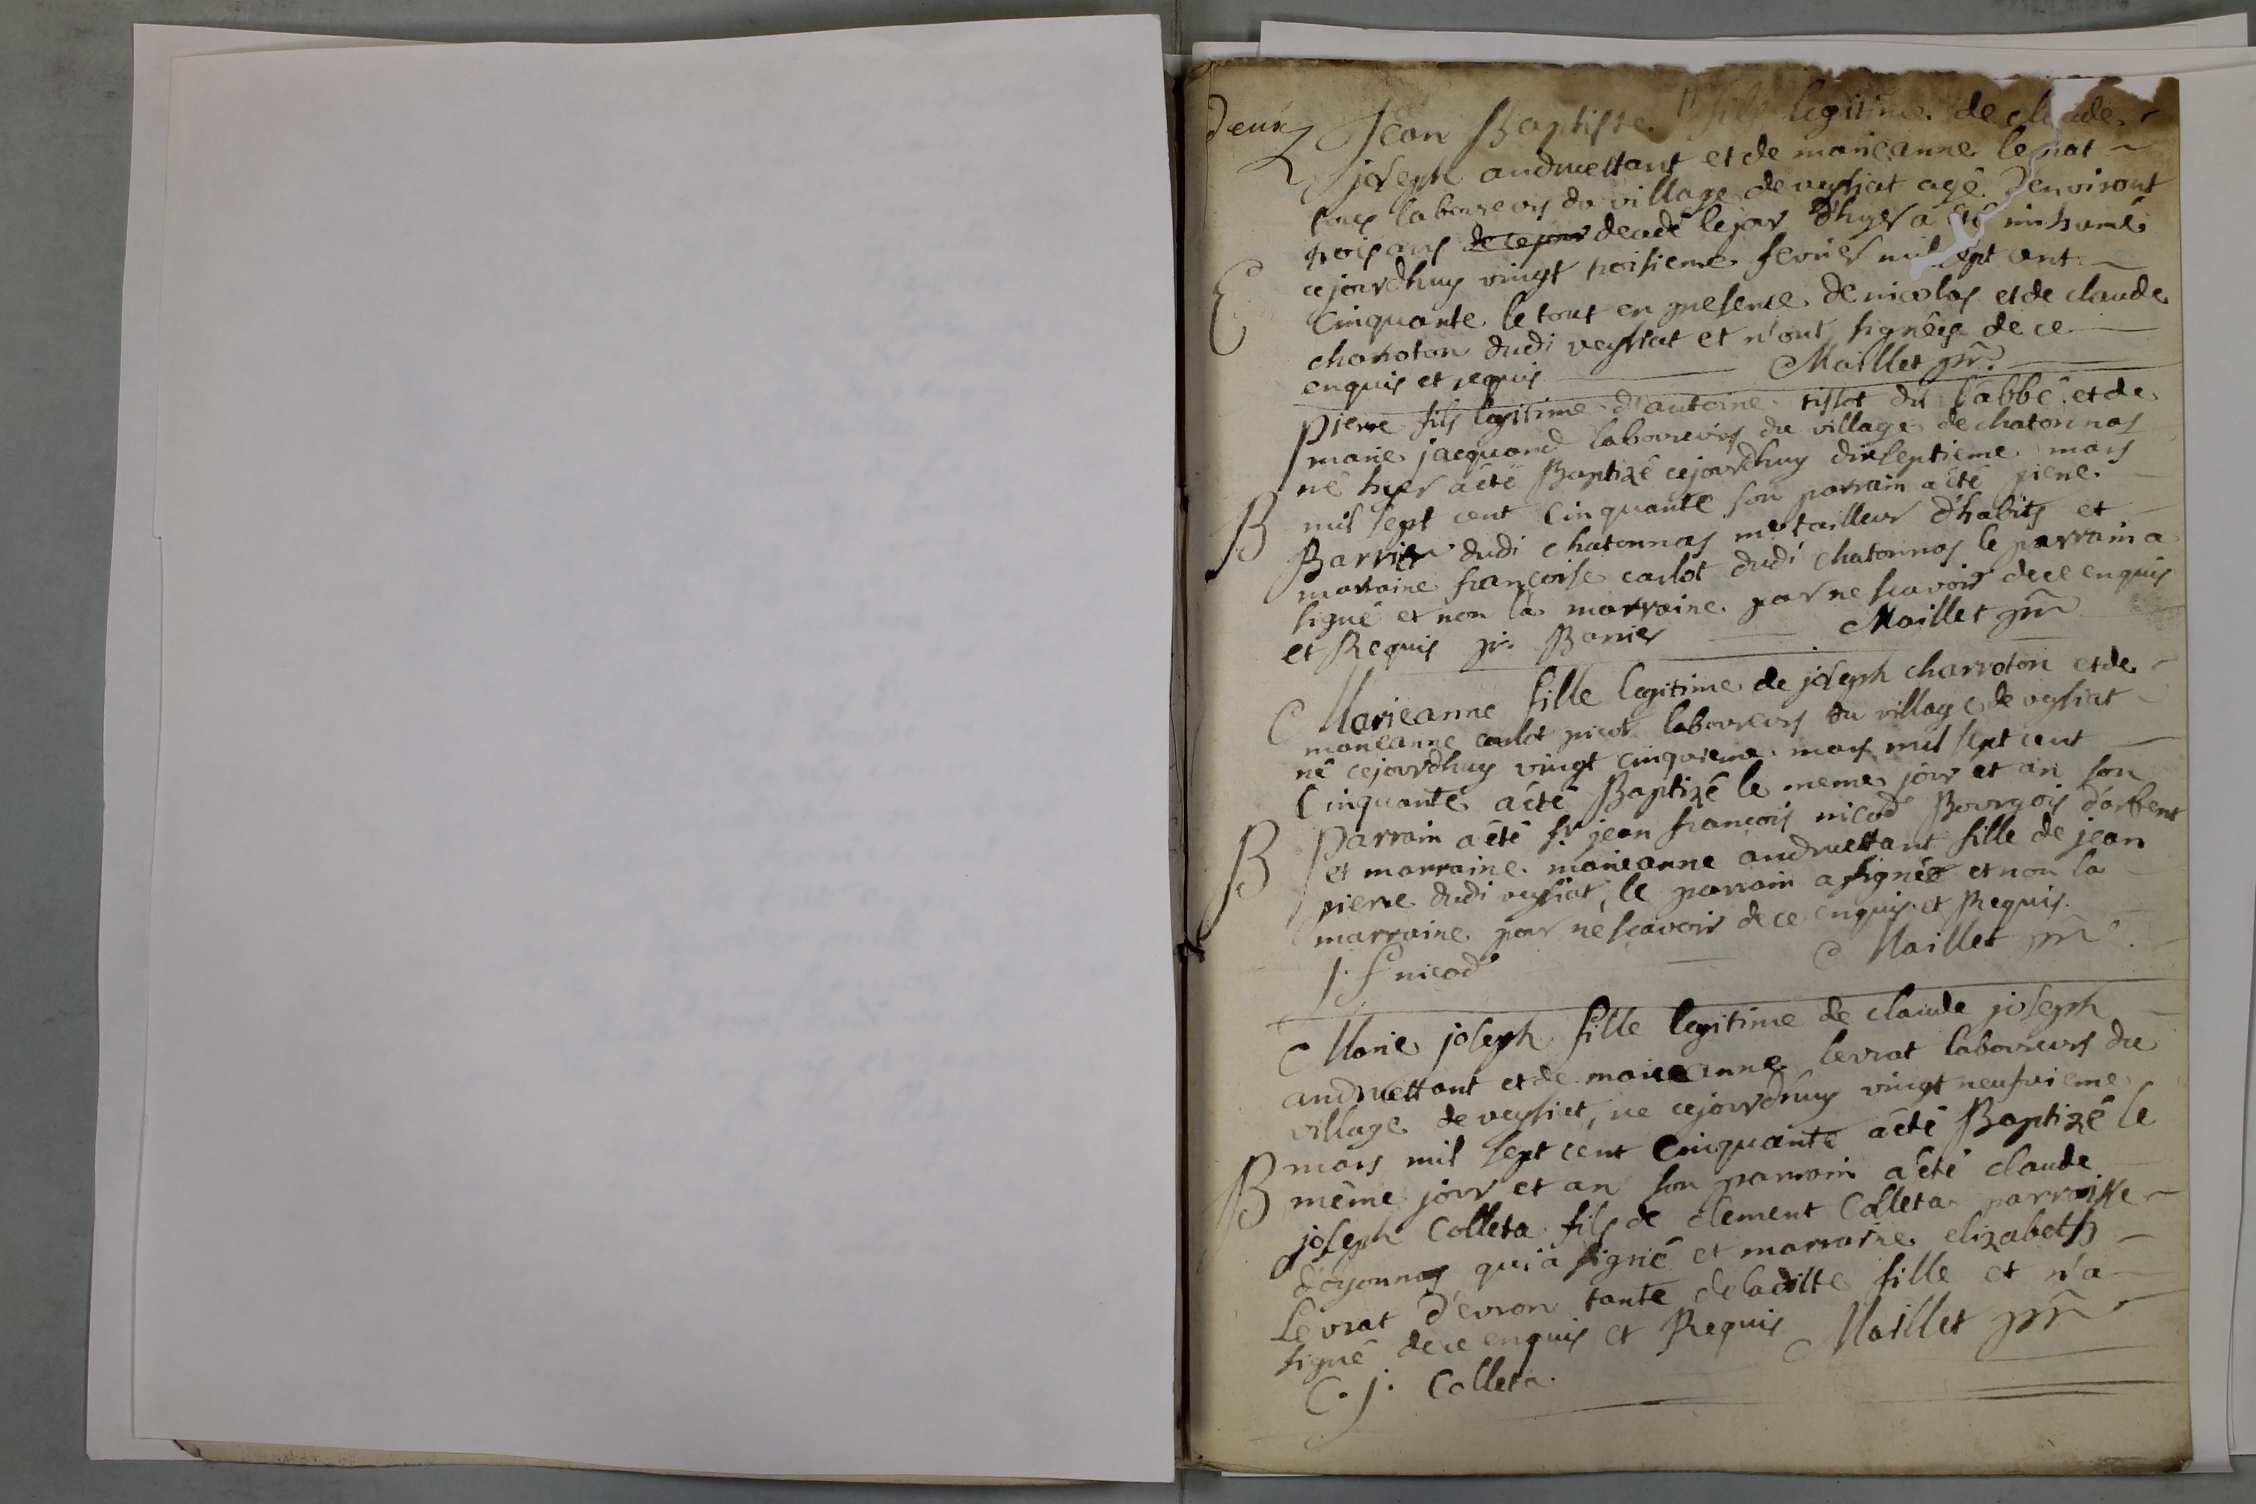 deux
Jean Baptiste fils legitime de claude
joseph andruettant et de marieanne levrat
tous laboureurs du village de veysiat agé d'environt
trois ans de ce jour decedé le jour d'hyer a été inhumé
E
cejourdhuy vingt troisieme fevrier mil sept cent
Cinquante le tout en presence de nicolas et de claude
charroton dudi veysiat et n'ont signées de ce
enquis et requis Maillet ptr
pierre fils legitime d'antoine tissot dit l'abbé et de
marie jacquand laboureurs du village de chatonnas
né hier a été Baptizé cejourdhuy dixseptieme mars
B
mil sept cent Cinquante son parrain a été piere
Barrier dudi chatonnas me tailleur d'habits et
marraine françoise carlot dudi chatonnas le parrain a
signé et non la marraine par ne scavoir de ce enquis
et Requis pr Barrier Maillet ptr
Marieanne fille legitime de joseph charroton et de
marieanne carlot picot laboureurs du village de veysiat
né cejourdhuy vingt cinquieme mars mil sept cent
Cinquante a été Baptizé le meme jour et an son
B
Parrain a été sr jean françois nicod Bourgois d'arbent
et marraine marieanne andruettant fille de jean
pierre dudi veysiat, le parrain a signée et non la
marraine pour ne scavoir de ce enquis et Requis
j. f nicod Maillet ptr
Marie joseph fille legitime de claude joseph
andruettant et de marieanne levrat laboureurs du
village de veysiat, ne cejourdhuy vingt neufvieme
mars mil sept cent Cinquante a été Baptizé le
B
même jour et an son parrain a été claude
joseph Colleta fils de clement Colleta parroisse
d'oyonnas qui a signé et marraine elizabeth
Levrat d'evron tante de ladilte fille et n'a
signé de ce enquis et Requis Maillet ptr
C. j. Colleta